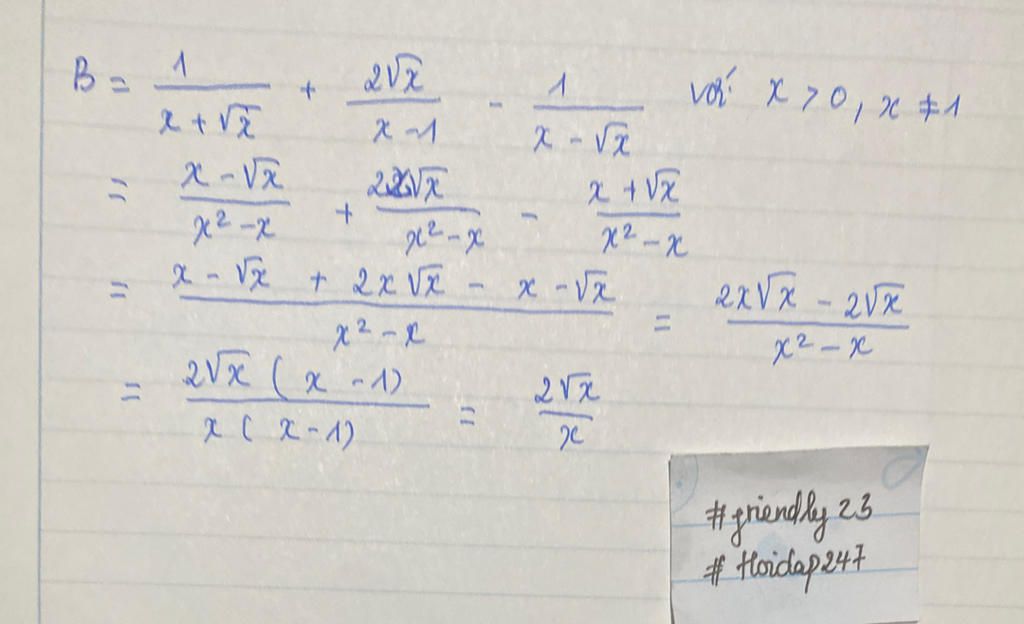 B = 1/(x + √x) + 2√x/(x - 1) - 1/(x - √x) với x > 0, x ≠ 1
= (x - √x)/(x² - x) + 2x√x/(x² - x) - (x + √x)/(x² - x)
= (x - √x + 2x√x - x - √x)/(x² - x) = (2x√x - 2√x)/(x² - x)
= 2√x (x - 1)/(x (x - 1)) = 2√x/x
#friendly 23
# Hoidap247